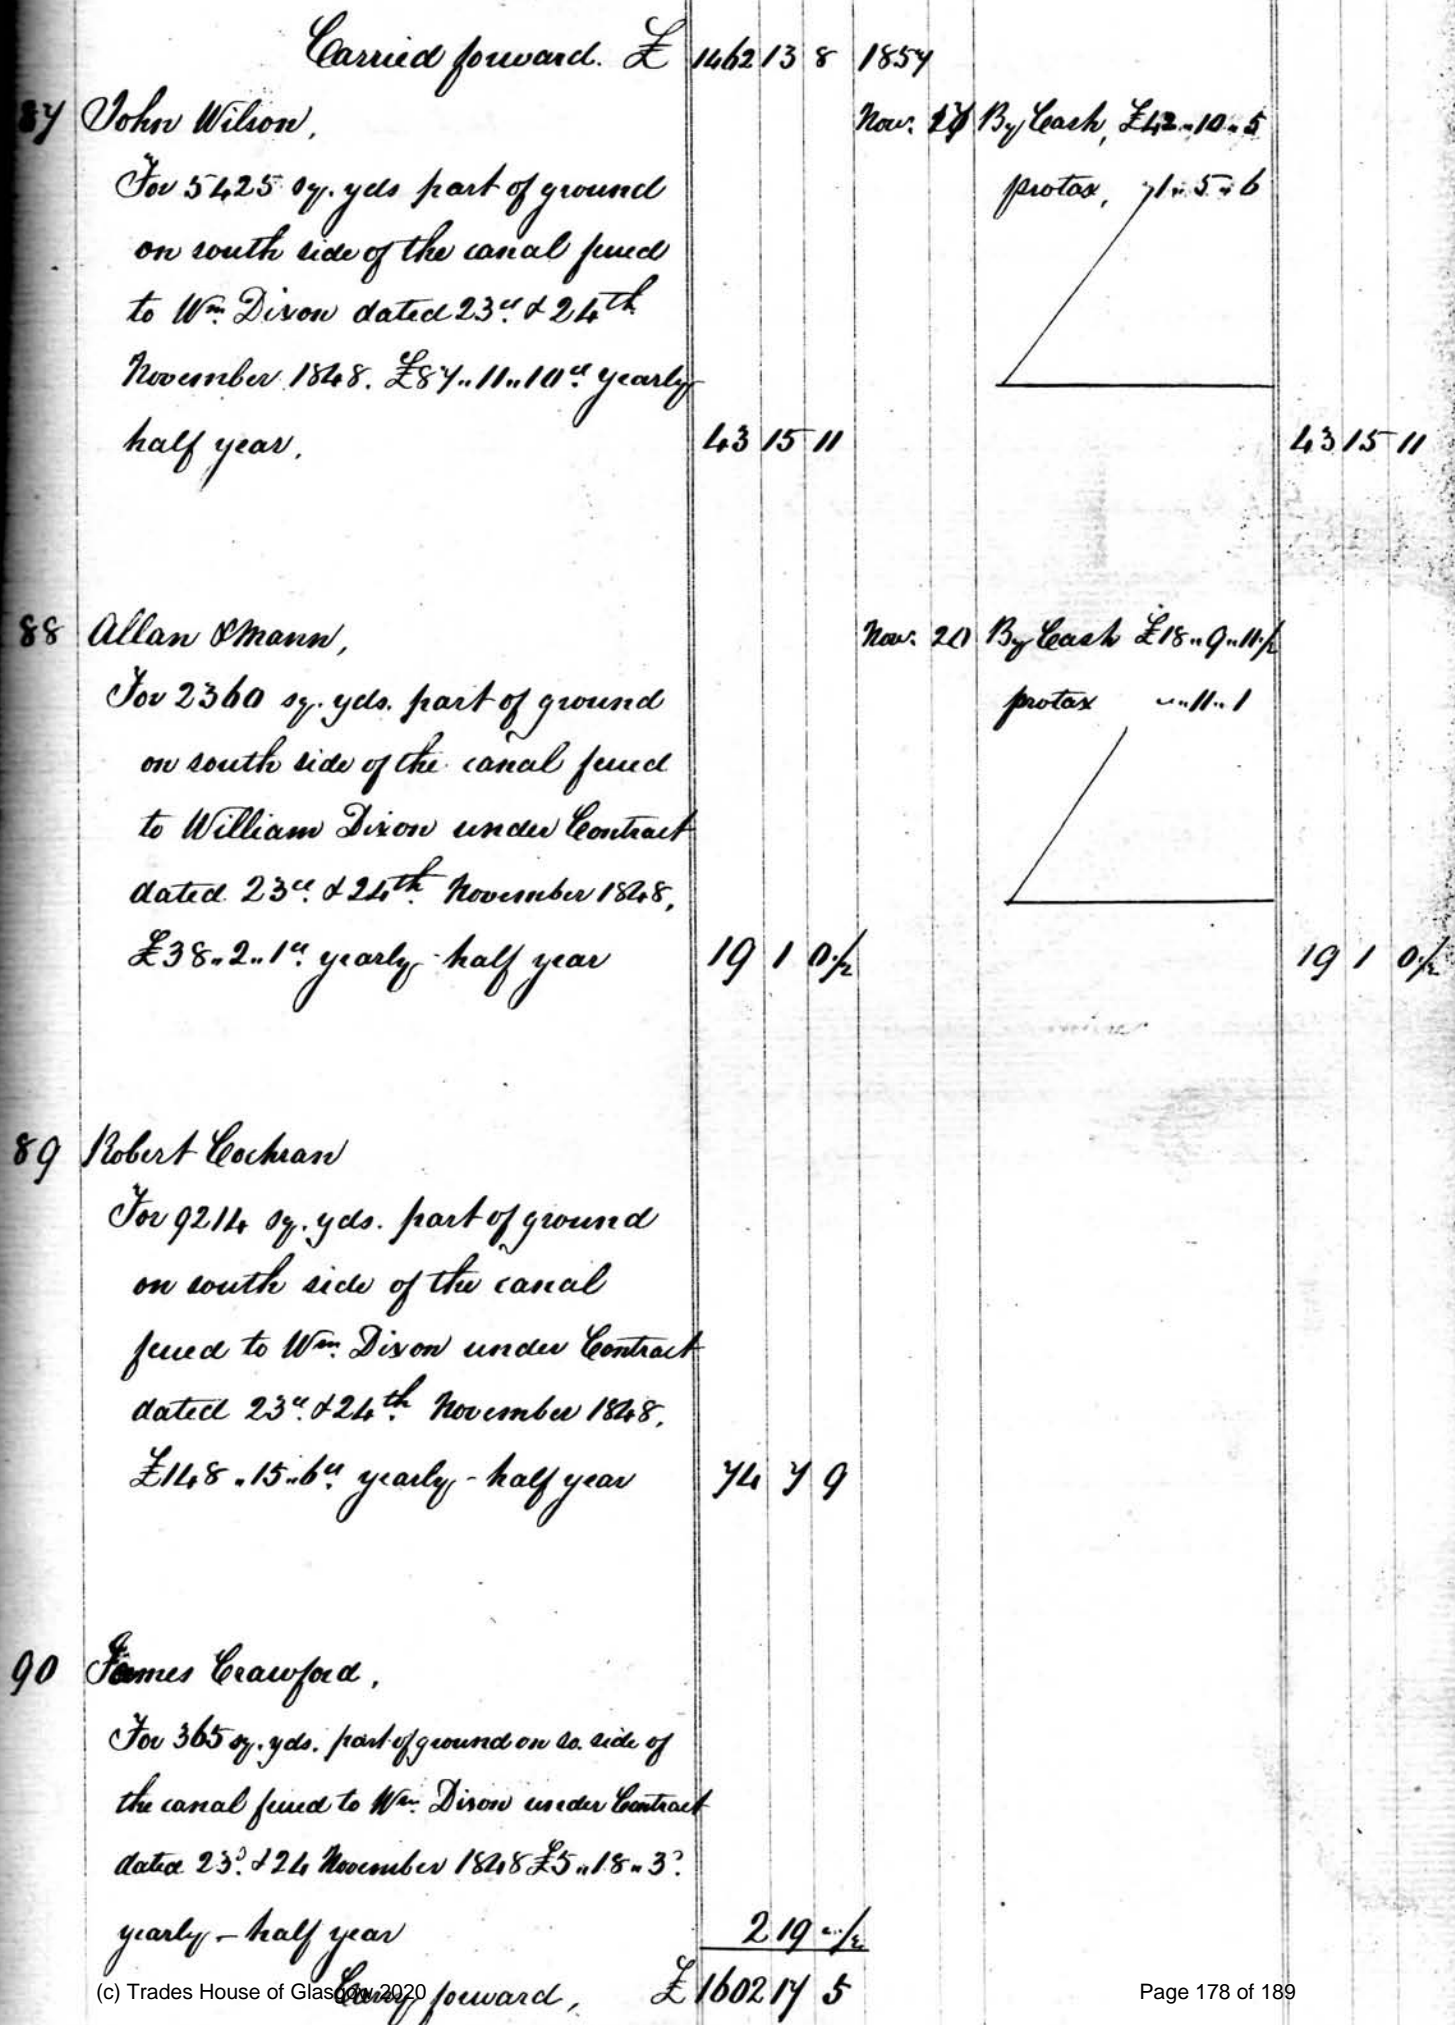 Carried forward. £ 1462 13 8 1857
87 John Wilson, Nov. By Cash, £42.10.5
For 5425 sq. yds part of ground protax, 1.5.6
on south side of the canal feued
to Wm. Dixon dated 23d. & 24th
November 1848. £87..11..10d. yearly
half year, 43 15 11 43 15 11
88 Allan & Mann, Nov. 20 By Cash £18..9..11½
For 2360 sq. yds. part of ground protax „..11..1
on south side of the canal feued
to William Dixon under Contract
dated 23d. & 24th. November 1848,
£38..2..1d. yearly - half year 19 1 0½ 19 1 0½
89 Robert Cochran
For 9214 sq. yds. part of ground
on south side of the canal
feued to Wm. Dixon under Contract
dated 23d. & 24th. November 1848,
£148..15..6d. yearly - half year 74 7 9
90 James Crawford,
For 365 sq. yds. part of ground on so. side of
the canal feued to Wm. Dixon under Contract
dated 23d. & 24 November 1848 £5..18..3d.
yearly - half year 2 19 „½
Carry forward, £1602 17 5
(c) Trades House of Glasgow 2020 Page 178 of 189